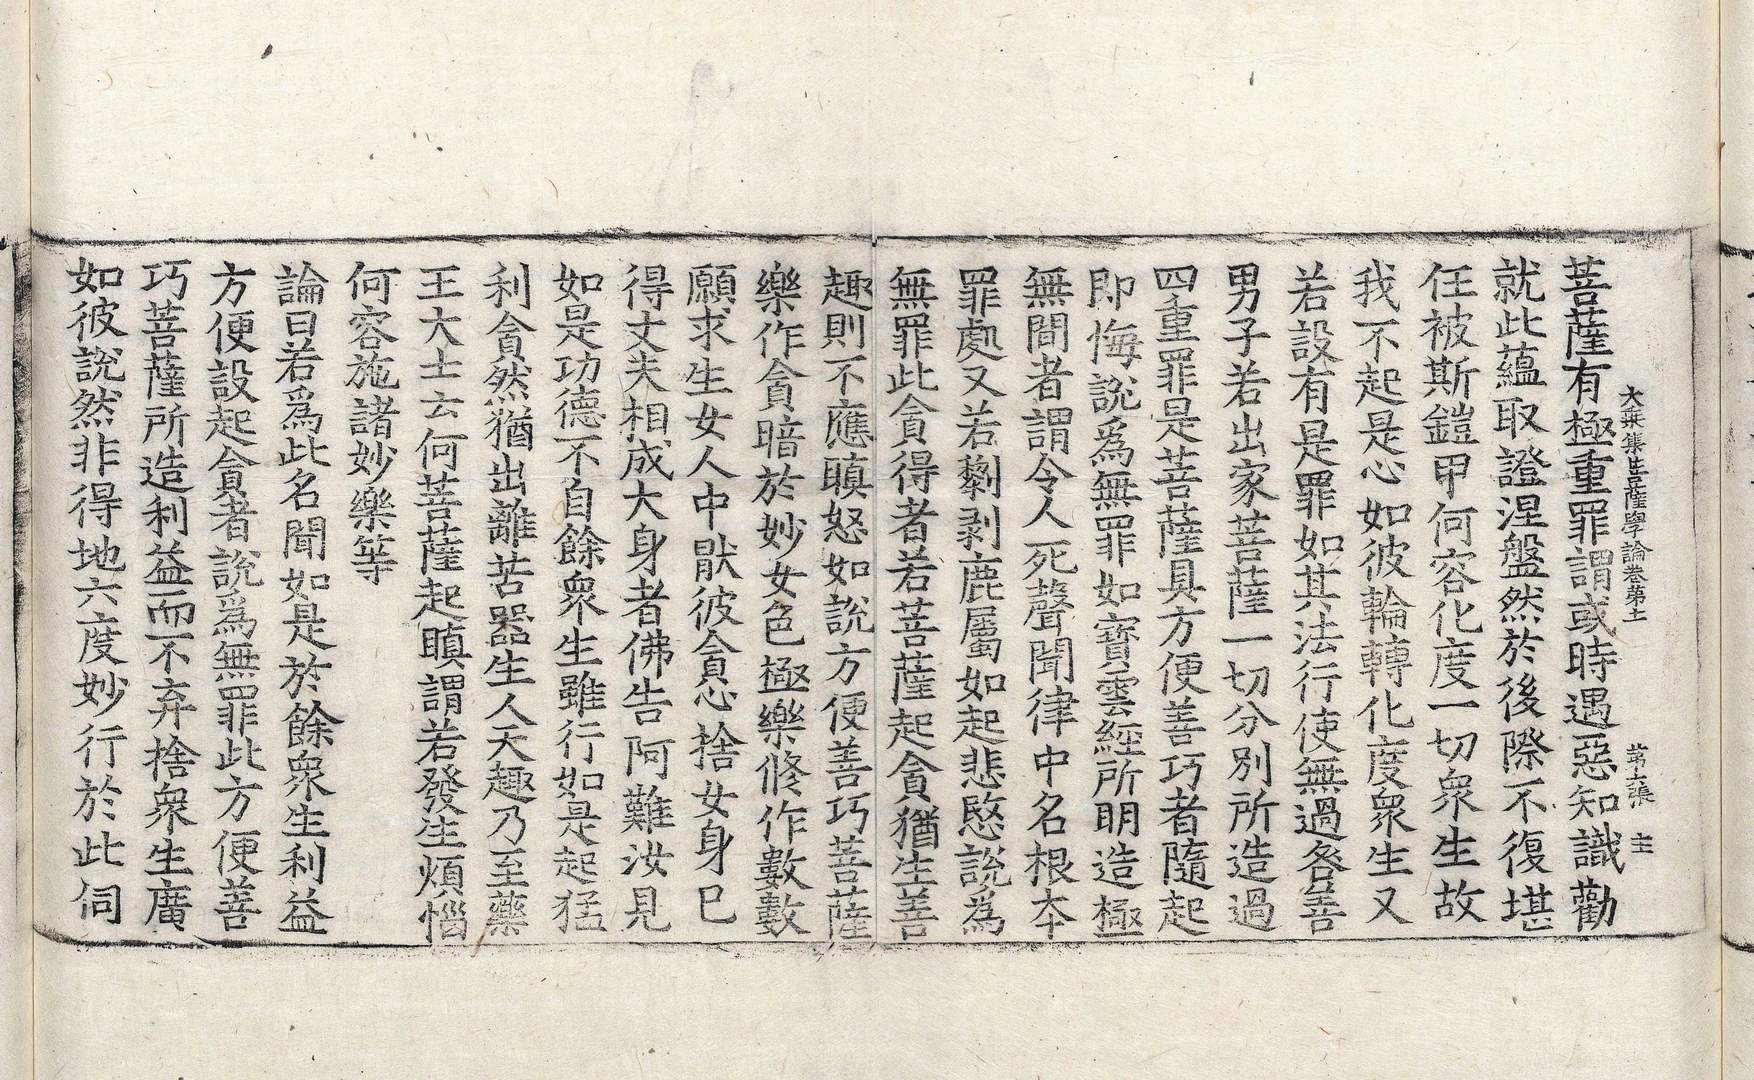 大乘集菩薩學論卷第十一 第十張 主
菩薩有極重罪謂或時遇惡知識勸
就此蘊取證涅盤然於後際不復堪
任被斯鎧甲何容化度一切衆生故
我不起是心如彼輪轉化度衆生又
若設有是罪如其法行使無過咎善
男子若出家菩薩一切分別所造過
四重罪是菩薩具方便善巧者隨起
即悔說爲無罪如寶雲經所明造極
無間者謂令人死聲聞律中名根本
罪處又若剺剥鹿屬如起悲愍說爲
無罪此貪得者若菩薩起貪猶生善
趣則不應瞋怒如說方便善巧菩薩
樂作貪暗於妙女色極樂修作數數
願求生女人中猒彼貪心捨女身已
得丈夫相成大身者佛告阿難汝見
如是功德不自餘衆生雖行如是起猛
利貪然猶出離苦器生人天趣乃至藥
王大士云何菩薩起瞋謂若發生煩惱
何容施諸妙樂等
論曰若爲此名聞如是於餘衆生利益
方便設起貪者說爲無罪此方便善
巧菩薩所造利益而不弃捨衆生廣
如彼說然非得地六度妙行於此伺